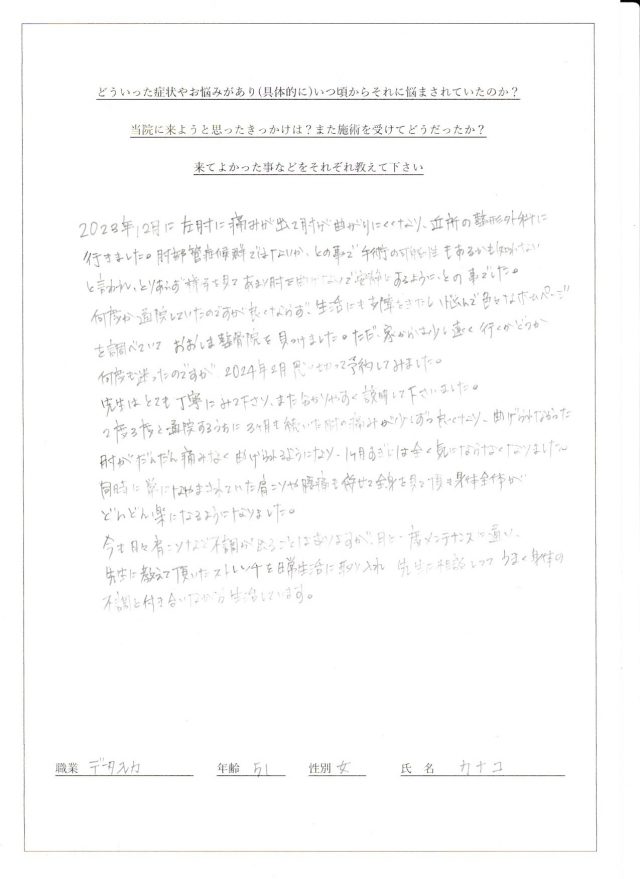 どういった症状やお悩みがあり(具体的に)いつ頃からそれに悩まされていたのか？
当院に来ようと思ったきっかけは？また施術を受けてどうだったか？
来てよかった事などをそれぞれ教えて下さい
2023年12月に左肘に痛みが出て肘が曲がりにくくなり、近所の整形外科に
行きました。肘部管症候群ではないか、との事で手術の可能性もあるかも知れない
と言われ、とりあえず様子を見てあまり肘を曲げないで安静にするように、との事でした。
何度か通院していたのですが良くならず、生活にも支障をきたし悩んで色々なホームページ
を調べていて おおしま整骨院を見つけました。ただ家からは少し遠く行くかどうか
何度も迷ったのですが、2024年2月思い切って予約してみました。
先生はとても丁寧にみて下さり、また分かりやすく説明して下さいました。
2度3度と通院するうちに3ヶ月も続いた肘の痛みが少しずつ良くなり、曲げられなかった
肘がだんだん痛みなく曲げられるようになり、1ヶ月すぎには全く気にならなくなりました。
同時に常になやまされていた肩こりや腰痛も併せて全身を見て頂き身体全体が
どんどん楽になるようになりました。
今も日々肩こりなど不調が出ることはありますが、月に一度メンテナンスに通い、
先生に教えて頂いたストレッチを日常生活に取り入れ 先生に相談しつつ うまく身体の
不調と付き合いながら生活しています。
職業 データ入力 年齢 51 性別 女 氏名 カナコ